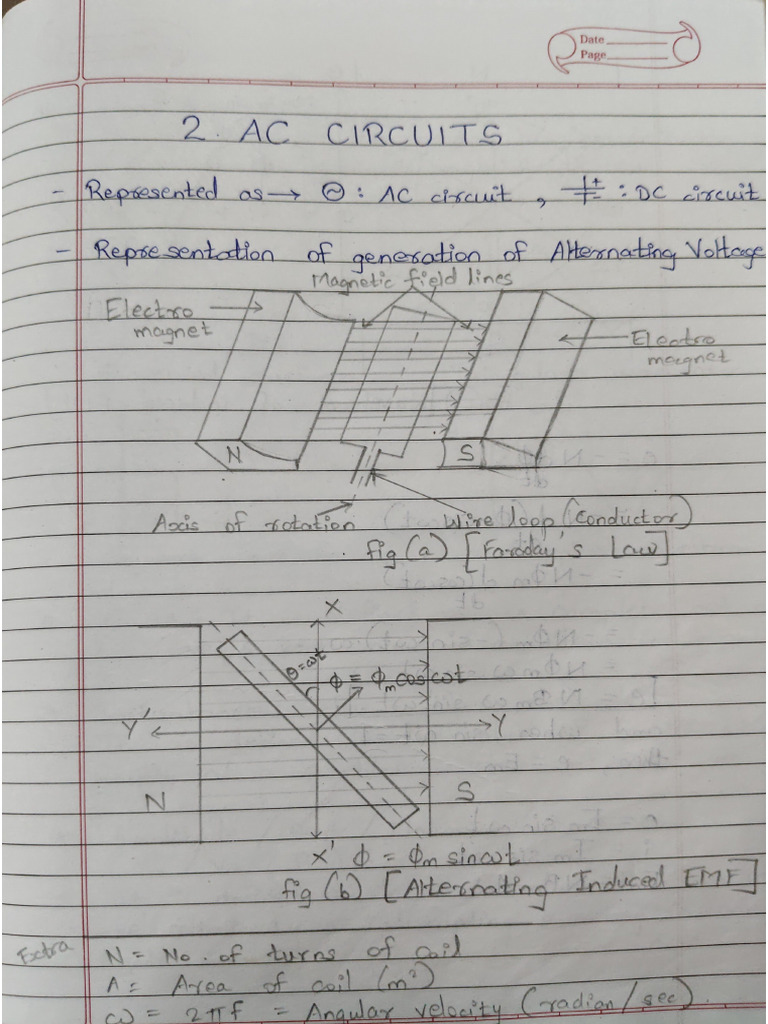 Date
Page
2. AC CIRCUITS
- Represented as → ⊝ : AC circuit , : DC circuit
- Representation of generation of Alternating Voltage
Magnetic field lines
Electro
magnet
Electro
magnet
N
S
Axis of rotation
Wire loop (conductor)
fig (a) [Faraday's Law]
X
θ=ωt
ϕ = ϕm cos ωt
Y'
Y
N
S
X'
ϕ = ϕm sin ωt
fig (b) [Alternating Induced EMF]
Extra
N = No. of turns of coil
A = Area of coil (m²)
ω = 2πf = Angular velocity (radian/sec).